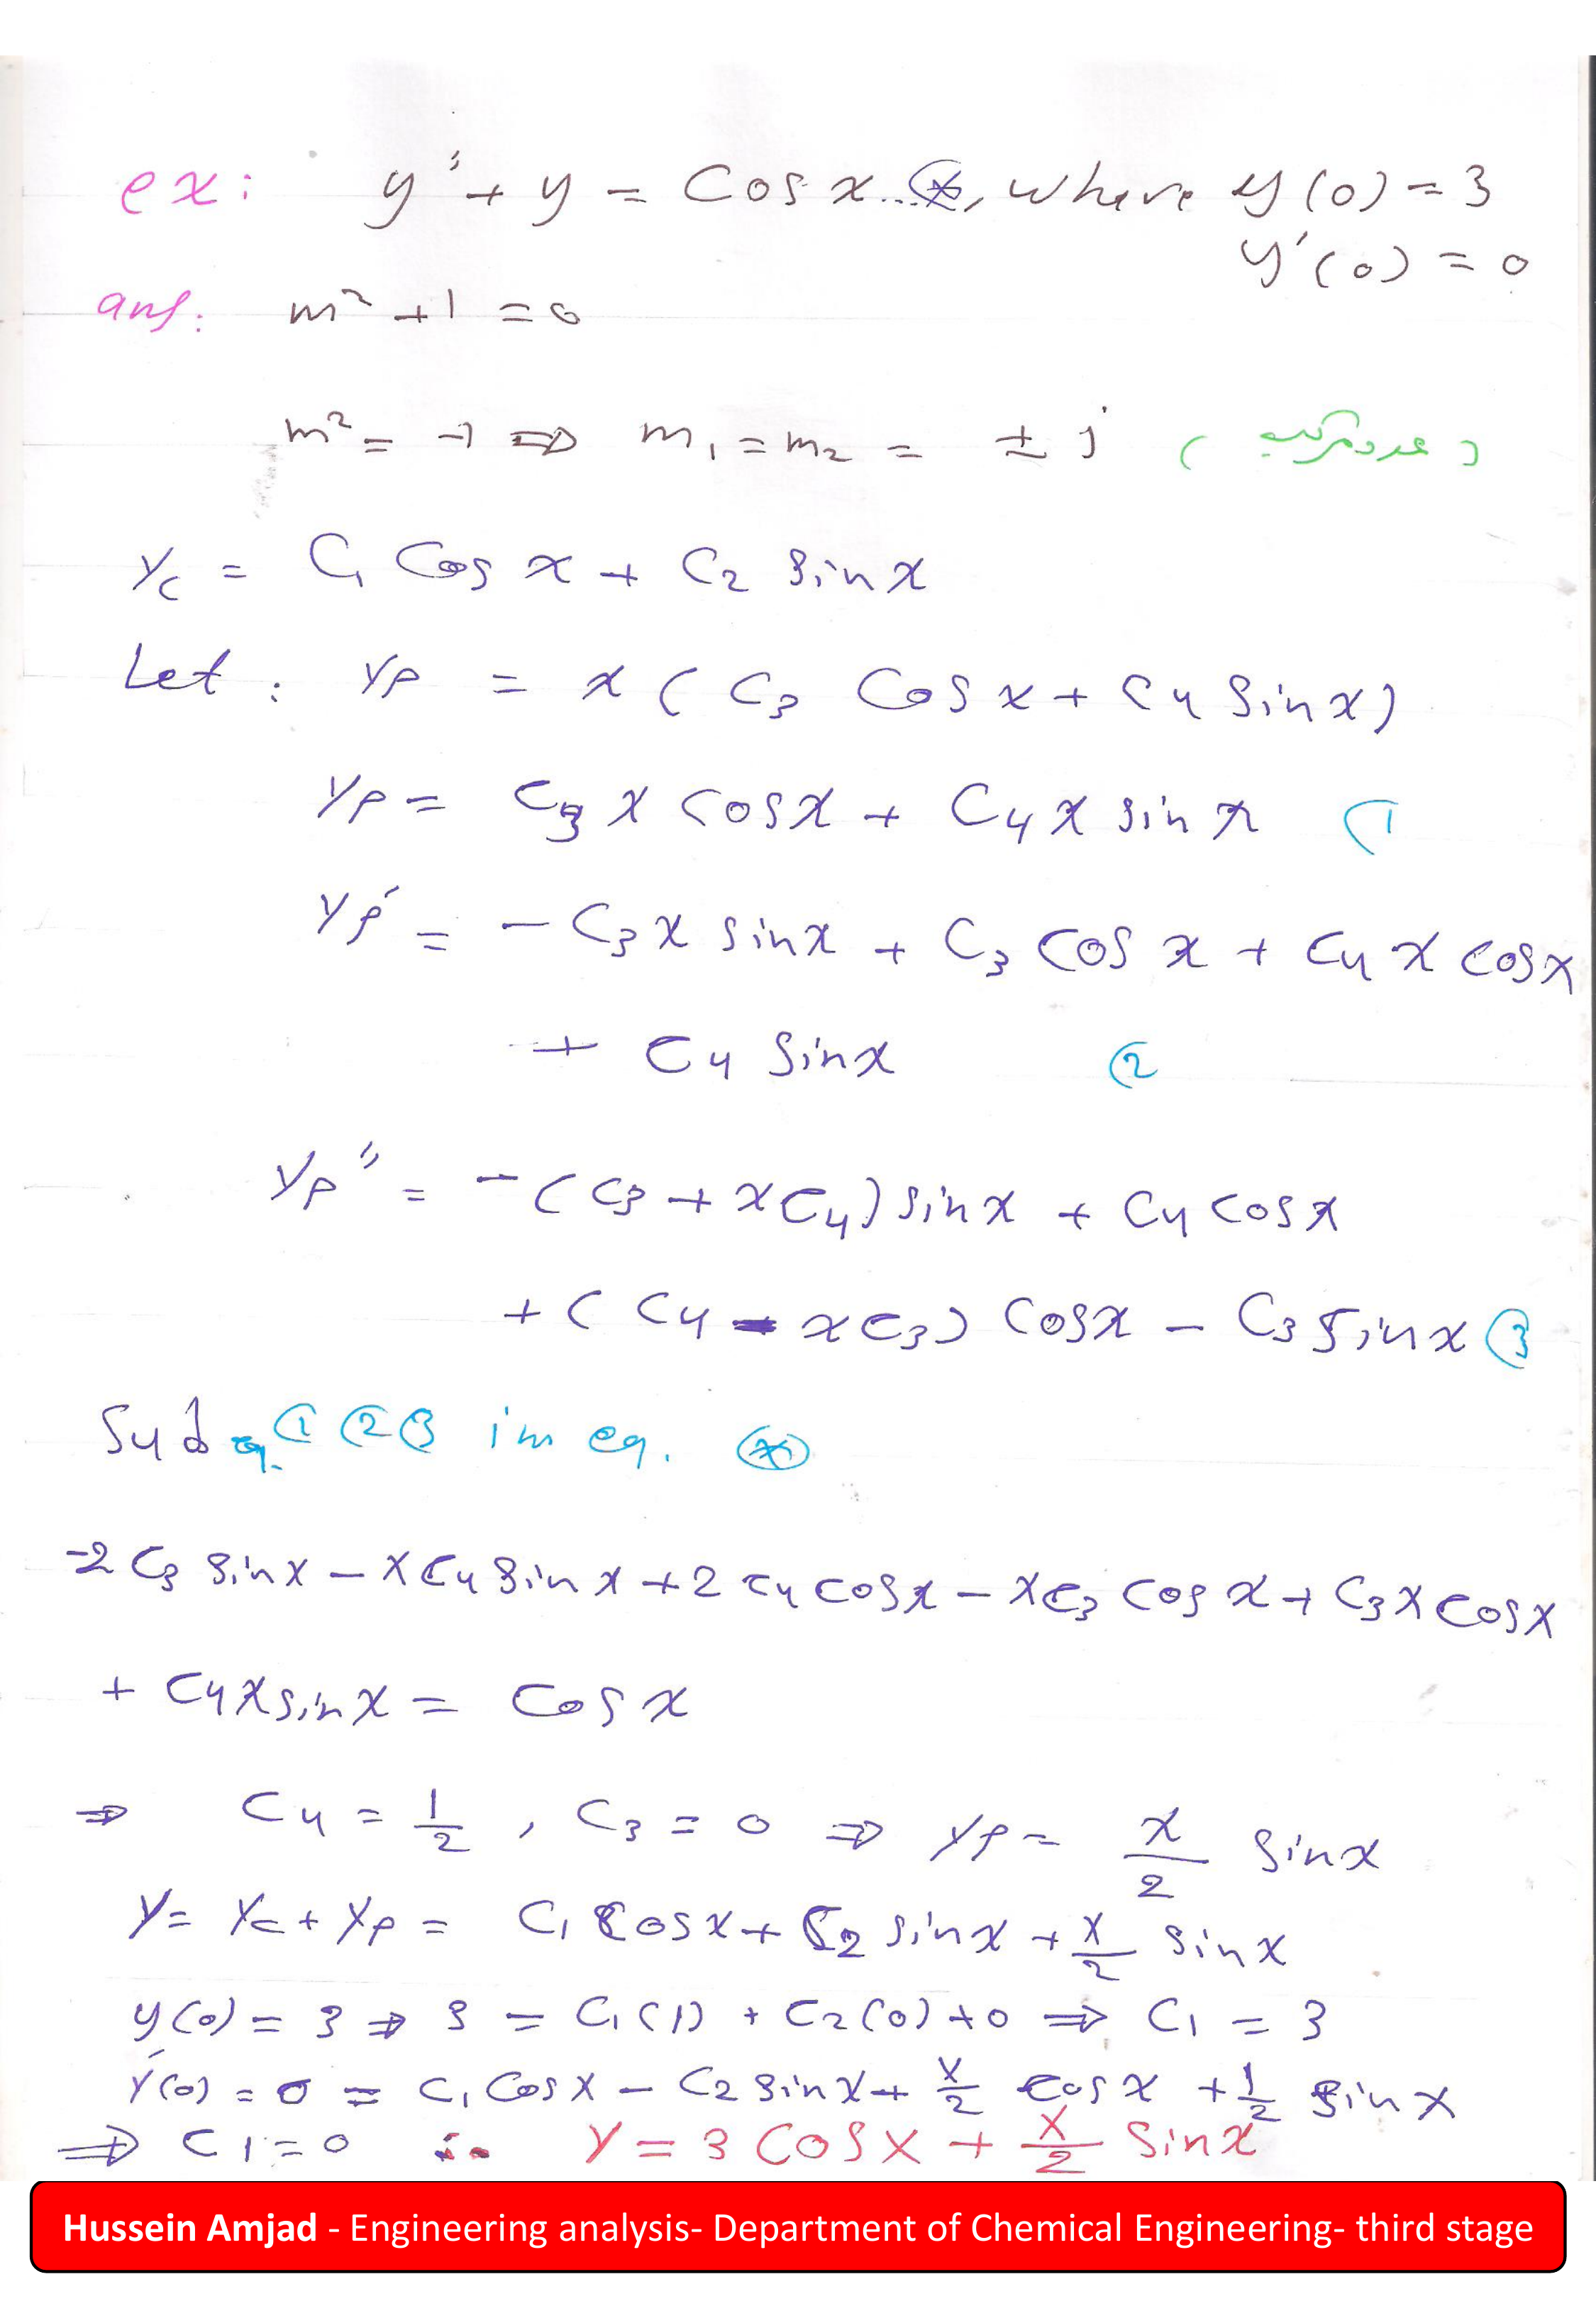 ex: y″ + y = Cos x...⊛, where y(0) = 3
y′(0) = 0
ans: m² + 1 = 0
m² = -1 ⇒ m₁ = m₂ = ± j (عدد مركب)
yc = C₁ Cos x + C₂ Sin x
Let : yp = x ( C₃ Cos x + C₄ Sin x)
yp = C₃ x cos x + C₄ x sin x ①
yp′ = - C₃ x sin x + C₃ cos x + C₄ x cos x
+ C₄ Sin x ②
yp″ = - ( C₃ + x C₄) sin x + C₄ cos x
+ ( C₄ - x C₃) cos x - C₃ sin x ③
Sub eq. ① ② ③ in eq. ⊛
-2 C₃ sin x - x C₄ sin x + 2 C₄ cos x - x C₃ cos x + C₃ x cos x
+ C₄ x sin x = cos x
⇒ C₄ = 1/2 , C₃ = 0 ⇒ yp = x/2 Sin x
y = yc + yp = C₁ cos x + C₂ sin x + x/2 sin x
y(0) = 3 ⇒ 3 = C₁(1) + C₂(0) + 0 ⇒ C₁ = 3
y′(0) = 0 = C₁ Cos x - C₂ sin x + x/2 cos x + 1/2 sin x
⇒ C₁ = 0 ∴ y = 3 Cos x + x/2 Sin x
Hussein Amjad - Engineering analysis- Department of Chemical Engineering- third stage